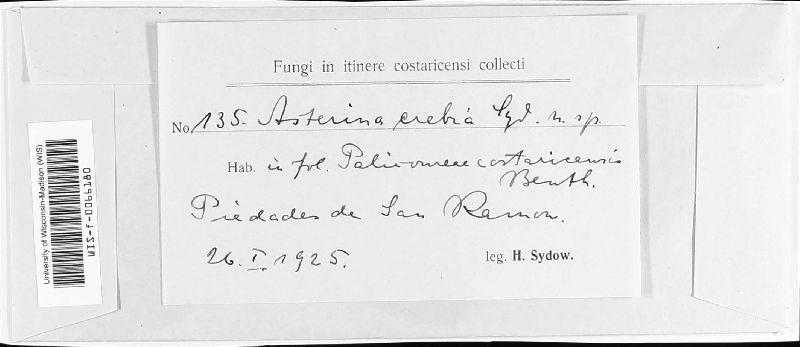 Fungi in itinere costaricensi collecti
No. 135. Asterina crebra Syd. n. sp.
Hab. in fol. Palicoureae costaricensis
Benth.
Piedades de San Ramon.
26. I. 1925.
leg. H. Sydow.
University of Wisconsin-Madison (WIS)
WIS-f-0066180